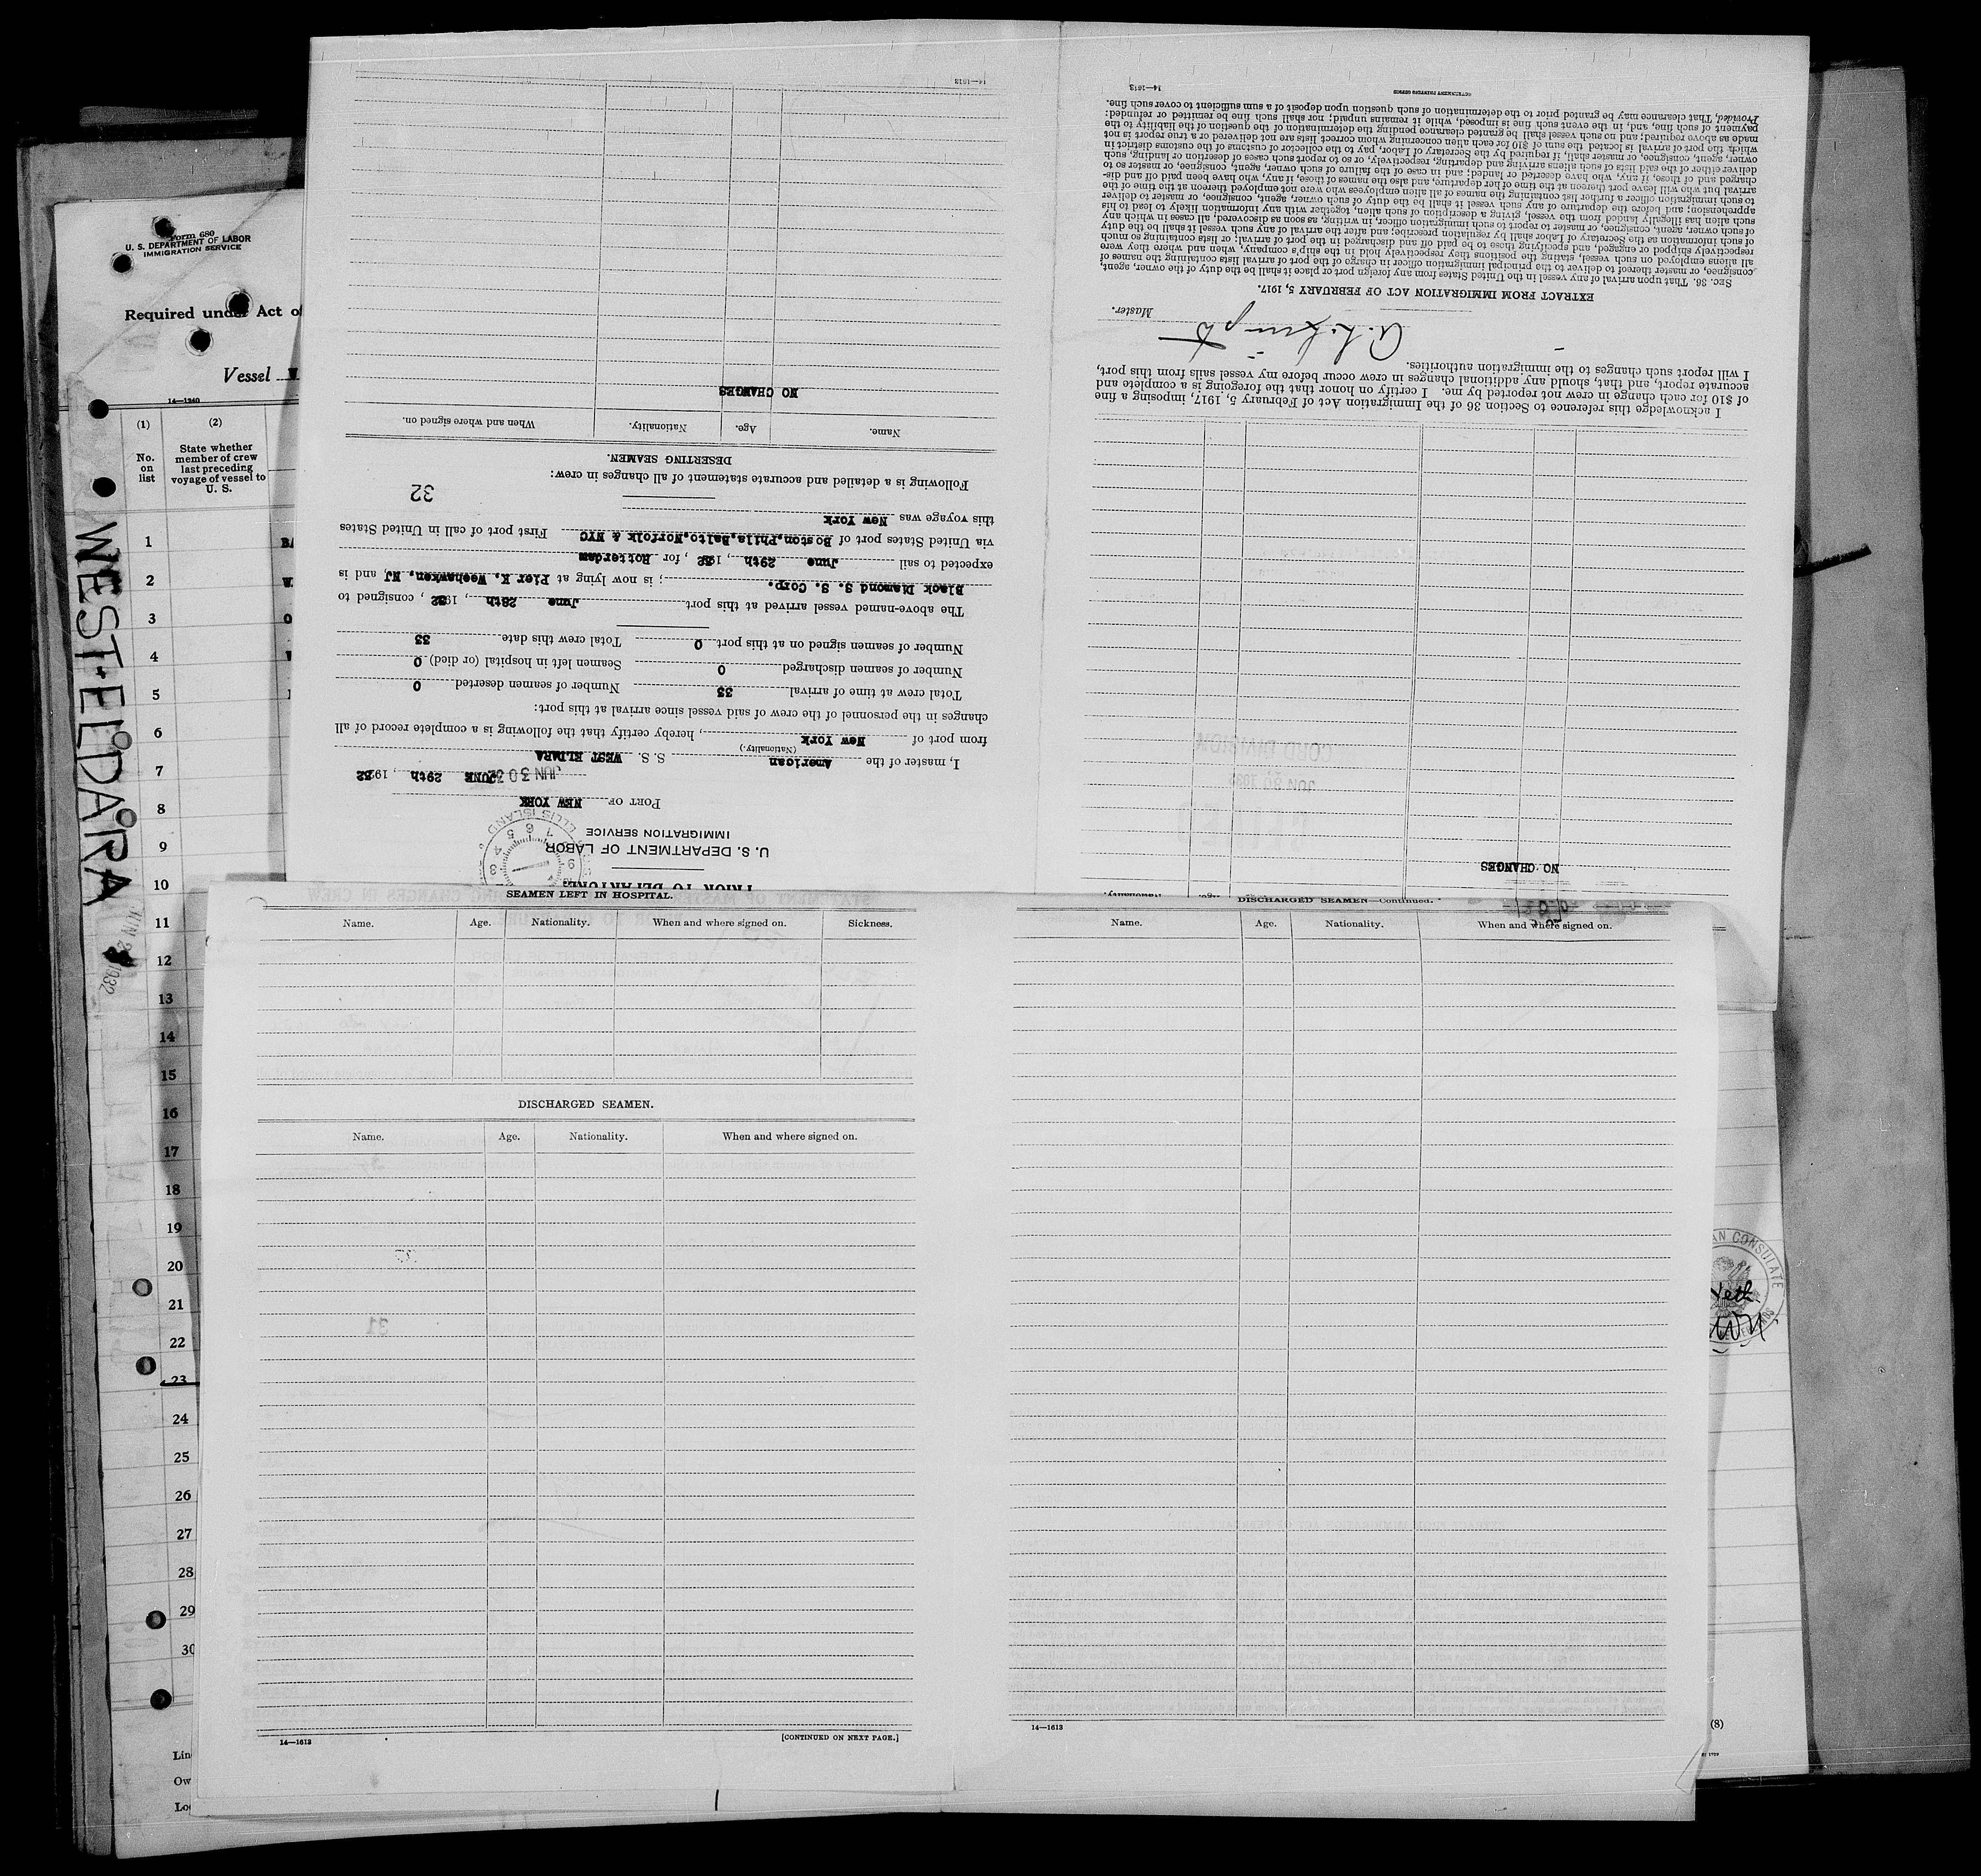 Form 680
U. S. DEPARTMENT OF LABOR
IMMIGRATION SERVICE
Required under Act of
Vessel
14—1240
(1)
(2)
No. on list
State whether member of crew last preceding voyage of vessel to U. S.
1
2
3
4
5
6
7
8
9
10
11
12
13
14
15
16
17
18
19
20
21
22
23
24
25
26
27
28
29
30
WEST·ELDARA
1932
Lin
Ow
Lo
PRIOR TO DEPARTURE
U. S. DEPARTMENT OF LABOR
IMMIGRATION SERVICE
ELLIS ISLAND
PORT OF NEW YORK
JUN 30 32
JUNE 29th, 1932
I, master of the American S. S. WEST ELDARA
(Nationality.)
from port of New York, hereby certify that the following is a complete record of all
changes in the personnel of the crew of said vessel since arrival at this port:
Total crew at time of arrival 33 Number of seamen deserted 0
Number of seamen discharged 0 Seamen left in hospital (or died) 0
Number of seamen signed on at this port 0 Total crew this date 33
The above-named vessel arrived at this port June 28th, 1932, consigned to
Black Diamond S. S. Corp.; is now lying at Pier K, Weehawken, NJ, and is
expected to sail June 29th, 1932, for Rotterdam
via United States port of Boston,Phila,Balto,Norfolk & NYC First port of call in United States
this voyage was New York
32
Following is a detailed and accurate statement of all changes in crew:
DESERTING SEAMEN.
Name. Age. Nationality. When and where signed on.
NO CHANGES
14—1613
NO CHANGES
I acknowledge this reference to Section 36 of the Immigration Act of February 5, 1917, imposing a fine
of $10 for each change in crew not reported by me. I certify on honor that the foregoing is a complete and
accurate report, and that, should any additional changes in crew occur before my vessel sails from this port,
I will report such changes to the immigration authorities.
Master.
EXTRACT FROM IMMIGRATION ACT OF FEBRUARY 5, 1917.
SEC. 36. That upon arrival of any vessel in the United States from any foreign port or place it shall be the duty of the owner, agent,
consignee, or master thereof to deliver to the principal immigration officer in charge of the port of arrival lists containing the names of
all aliens employed on such vessel, stating the positions they respectively hold in the ship's company, when and where they were
respectively shipped or engaged, and specifying those to be paid off and discharged in the port of arrival; or lists containing so much
of such information as the Secretary of Labor shall by regulation prescribe; and after the arrival of any such vessel it shall be the duty
of such owner, agent, consignee, or master to report to such immigration officer, in writing, as soon as discovered, all cases in which any
such alien has illegally landed from the vessel, giving a description of such alien, together with any information likely to lead to his
apprehension; and before the departure of any such vessel it shall be the duty of such owner, agent, consignee, or master to deliver
to such immigration officer a further list containing the names of all alien employees who were not employed thereon at the time of the
arrival but who will leave port thereon at the time of her departure, and also the names of those, if any, who have been paid off and dis-
charged and of those, if any, who have deserted or landed; and in case of the failure of such owner, agent, consignee, or master so to
deliver either of the said lists of such aliens arriving and departing, respectively, or so to report such cases of desertion or landing, such
owner, agent, consignee, or master shall, if required by the Secretary of Labor, pay to the collector of customs of the customs district in
which the port of arrival is located the sum of $10 for each alien concerning whom correct lists are not delivered or a true report is not
made as above required; and no such vessel shall be granted clearance pending the determination of the question of the liability to the
payment of such fine, and, in the event such fine is imposed, while it remains unpaid; nor shall such fine be remitted or refunded:
Provided, That clearance may be granted prior to the determination of such question upon deposit of a sum sufficient to cover such fine.
14—1613
GOVERNMENT PRINTING OFFICE
SEAMEN LEFT IN HOSPITAL.
Name. Age. Nationality. When and where signed on. Sickness.
DISCHARGED SEAMEN.
Name. Age. Nationality. When and where signed on.
14—1613
[CONTINUED ON NEXT PAGE.]
DISCHARGED SEAMEN—Continued.
Name. Age. Nationality. When and where signed on.
14—1613
AN CONSULATE
(8)